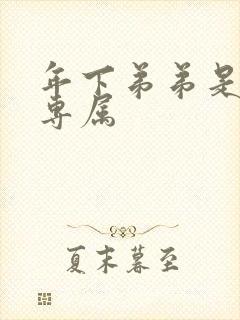 年下弟弟是
专属
夏末暮至